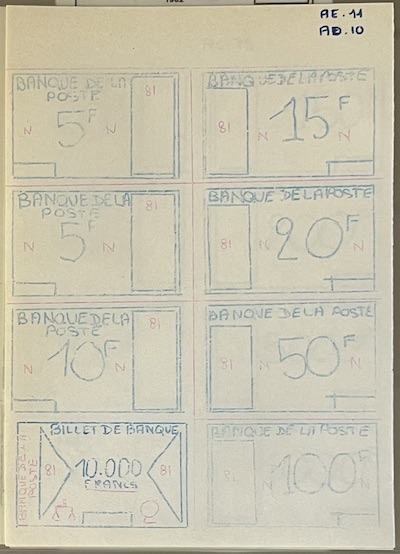 AE.11
AD.10
BANQUE DE LA
POSTE
81
N 5F N
BANQUE DE LA POSTE
81
N 15F N
BANQUE DE LA
POSTE
81
N 5F N
BANQUE DE LA POSTE
81
N 20F N
BANQUE DE LA
POSTE
81
N 10F N
BANQUE DE LA POSTE
81
N 50F N
BILLET DE BANQUE
81
10.000
FRANCS
81
POSTE
BANQUE DE LA POSTE
81
N 100F N